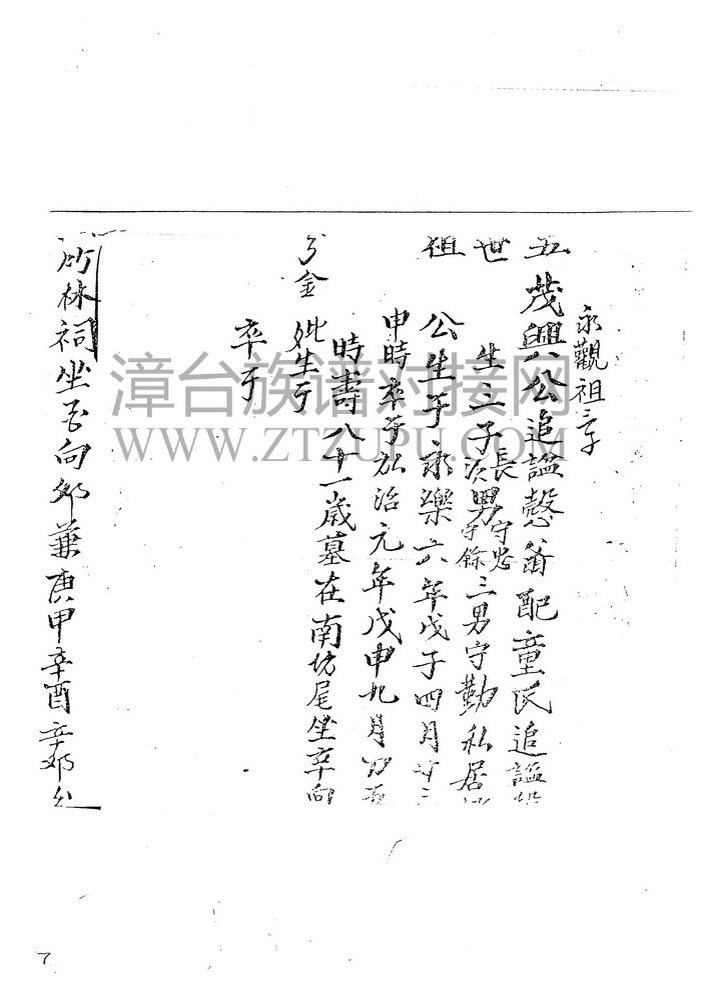 永觀祖
五世祖
茂興公追謚慤翁配童氏追謚
生三子長男守忠次男守餘三男守勤私居
公生于永樂六年戊子四月廿三
申時卒于弘治元年戊申九月
時壽八十一歲墓在南坊尾坐辛向
分金
妣生于
卒于
竹林祠坐酉向卯兼庚甲辛酉辛卯分
漳台族谱对接网
WWW.ZTZUPU.COM
7